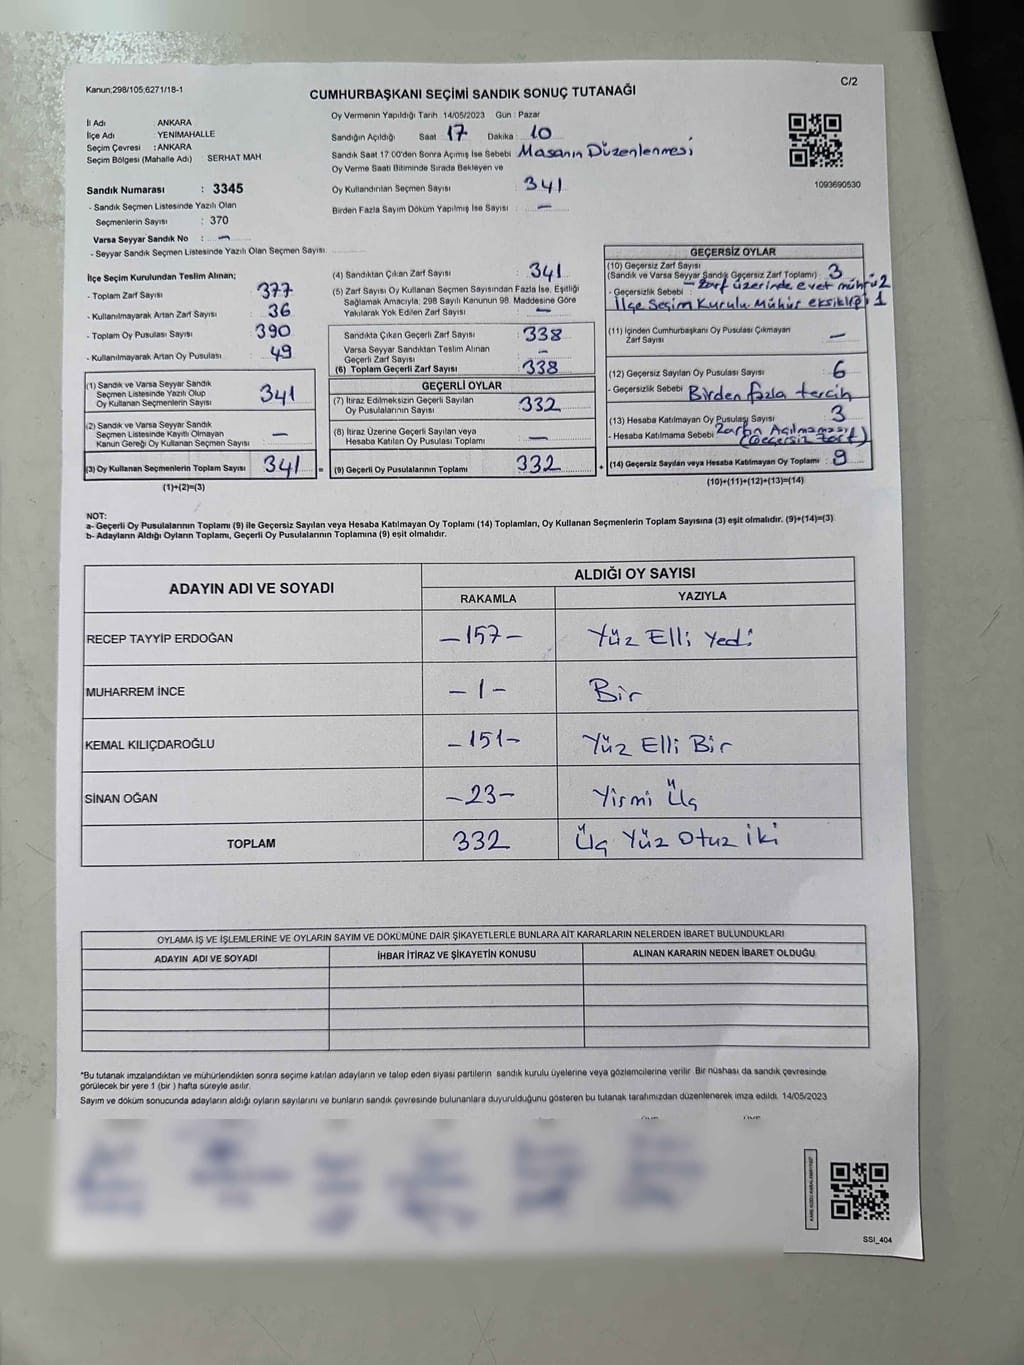 Kanun;298/105;6271/18-1
C/2
CUMHURBAŞKANI SEÇİMİ SANDIK SONUÇ TUTANAĞI
İl Adı : ANKARA
İlçe Adı : YENİMAHALLE
Seçim Çevresi : ANKARA
Seçim Bölgesi (Mahalle Adı) : SERHAT MAH
Sandık Numarası : 3345
- Sandık Seçmen Listesinde Yazılı Olan
Seçmenlerin Sayısı : 370
Varsa Seyyar Sandık No : -
- Seyyar Sandık Seçmen Listesinde Yazılı Olan Seçmen Sayısı
Oy Vermenin Yapıldığı Tarih 14/05/2023 Gün : Pazar
Sandığın Açıldığı Saat 17 Dakika : 10
Sandık Saat 17 00'den Sonra Açımış İse Sebebi Masanın Düzenlenmesi
Oy Verme Saati Bitiminde Sırada Bekleyen ve
Oy Kullandırılan Seçmen Sayısı : 341
Birden Fazla Sayım Döküm Yapılmış İse Sayısı : -
1093690530
İlçe Seçim Kurulundan Teslim Alınan;
- Toplam Zarf Sayısı : 377
- Kullanılmayarak Artan Zarf Sayısı : 36
- Toplam Oy Pusulası Sayısı : 390
- Kullanılmayarak Artan Oy Pusulası : 49
(1) Sandık ve Varsa Seyyar Sandık
Seçmen Listesinde Yazılı Olup
Oy Kullanan Seçmenlerin Sayısı : 341
(2) Sandık ve Varsa Seyyar Sandık
Seçmen Listesinde Kayıtlı Olmayan
Kanun Gereği Oy Kullanan Seçmen Sayısı : -
(3) Oy Kullanan Seçmenlerin Toplam Sayısı : 341 =
(1)+(2)=(3)
(4) Sandıktan Çıkan Zarf Sayısı : 341
(5) Zarf Sayısı Oy Kullanan Seçmen Sayısından Fazla İse, Eşitliği
Sağlamak Amacıyla; 298 Sayılı Kanunun 98. Maddesine Göre
Yakılarak Yok Edilen Zarf Sayısı : -
Sandıkta Çıkan Geçerli Zarf Sayısı : 338
Varsa Seyyar Sandıktan Teslim Alınan
Geçerli Zarf Sayısı : -
(6) Toplam Geçerli Zarf Sayısı : 338
GEÇERLİ OYLAR
(7) İtiraz Edilmeksizin Geçerli Sayılan
Oy Pusulalarının Sayısı : 332
(8) İtiraz Üzerine Geçerli Sayılan veya
Hesaba Katılan Oy Pusulası Toplamı : -
(9) Geçerli Oy Pusulalarının Toplamı : 332 +
GEÇERSİZ OYLAR
(10) Geçersiz Zarf Sayısı
(Sandık ve Varsa Seyyar Sandık Geçersiz Zarf Toplamı) : 3
- Geçersizlik Sebebi : - Zarf üzerinde evet mührü 2
İlçe Seçim Kurulu Mühür eksikliği 1
(11) İçinden Cumhurbaşkanı Oy Pusulası Çıkmayan
Zarf Sayısı : -
(12) Geçersiz Sayılan Oy Pusulası Sayısı : 6
- Geçersizlik Sebebi : Birden fazla tercih
(13) Hesaba Katılmayan Oy Pusulası Sayısı : 3
- Hesaba Katılmama Sebebi : Zarfın Açılmaması
(Geçersiz Zarf)
(14) Geçersiz Sayılan veya Hesaba Katılmayan Oy Toplamı : 9
(10)+(11)+(12)+(13)=(14)
NOT:
a- Geçerli Oy Pusulalarının Toplamı (9) ile Geçersiz Sayılan veya Hesaba Katılmayan Oy Toplamı (14) Toplamları, Oy Kullanan Seçmenlerin Toplam Sayısına (3) eşit olmalıdır. (9)+(14)=(3)
b- Adayların Aldığı Oyların Toplamı, Geçerli Oy Pusulalarının Toplamına (9) eşit olmalıdır.
ADAYIN ADI VE SOYADI
ALDIĞI OY SAYISI
RAKAMLA YAZIYLA
RECEP TAYYİP ERDOĞAN -157- Yüz Elli Yedi
MUHARREM İNCE -1- Bir
KEMAL KILIÇDAROĞLU -151- Yüz Elli Bir
SİNAN OĞAN -23- Yirmi Üç
TOPLAM 332 Üç Yüz Otuz iki
OYLAMA İŞ VE İŞLEMLERİNE VE OYLARIN SAYIM VE DÖKÜMÜNE DAİR ŞİKAYETLERLE BUNLARA AİT KARARLARIN NELERDEN İBARET BULUNDUKLARI
ADAYIN ADI VE SOYADI İHBAR İTİRAZ VE ŞİKAYETİN KONUSU ALINAN KARARIN NEDEN İBARET OLDUĞU
*Bu tutanak imzalandıktan ve mühürlendikten sonra seçime katılan adayların ve talep eden siyasi partilerin sandık kurulu üyelerine veya gözlemcilerine verilir. Bir nüshası da sandık çevresinde
görülecek bir yere 1 (bir ) hafta süreyle asılır.
Sayım ve döküm sonucunda adayların aldığı oyların sayılarını ve bunların sandık çevresinde bulunanlara duyurulduğunu gösteren bu tutanak tarafımızdan düzenlenerek imza edildi. 14/05/2023
SSI_404